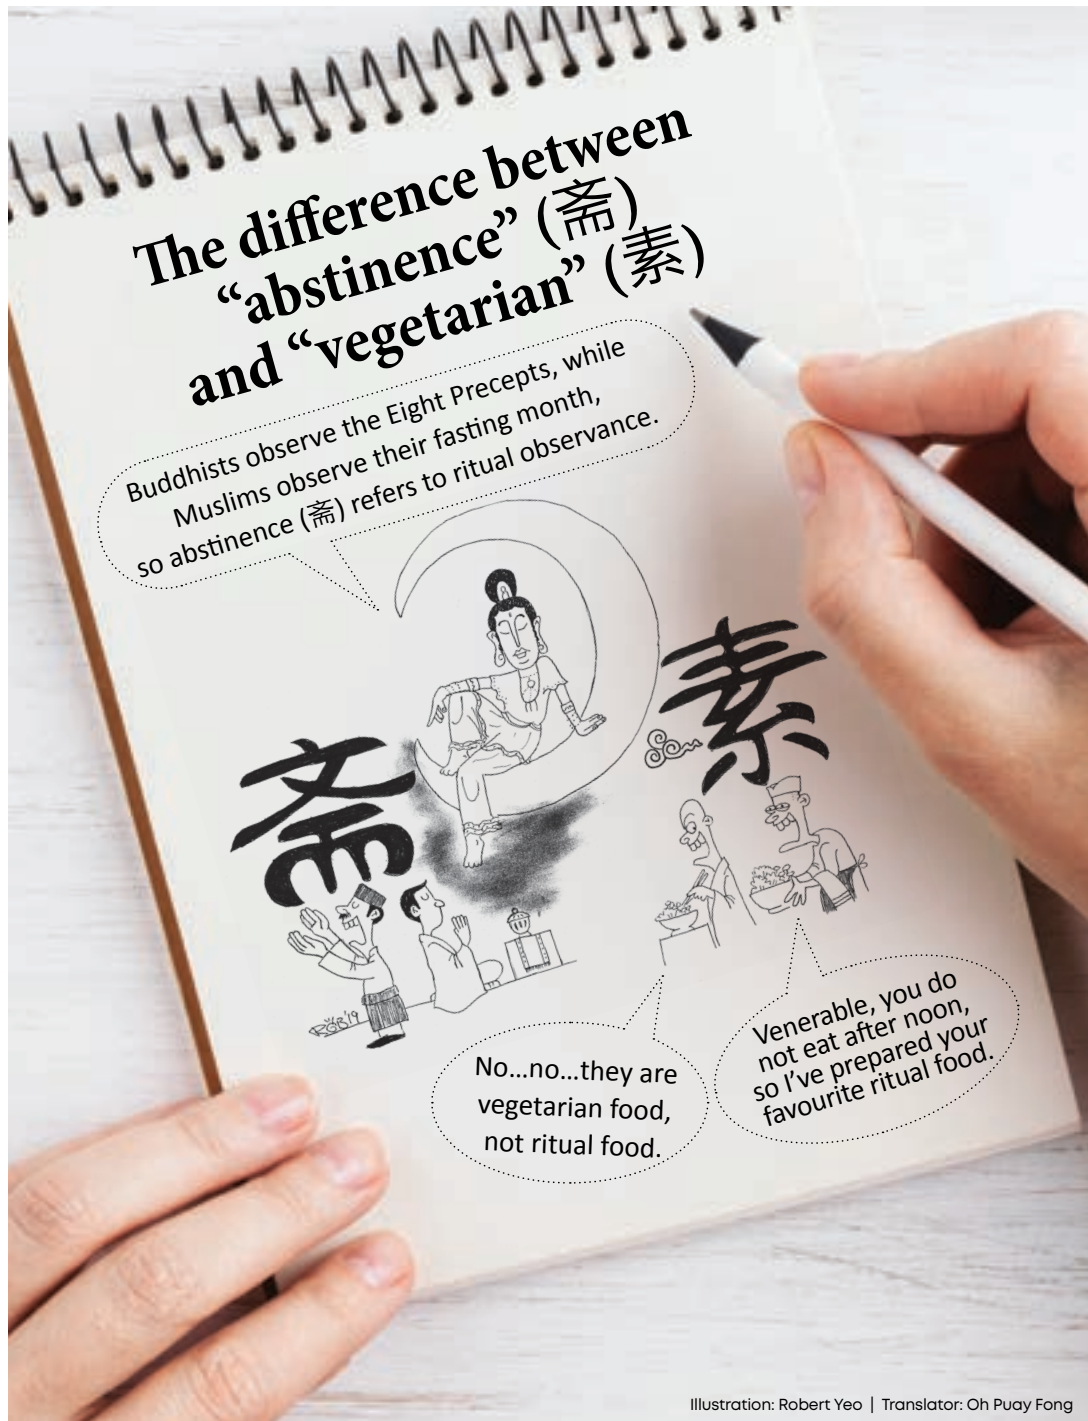 The difference between
“abstinence” (斋)
and “vegetarian” (素)
Buddhists observe the Eight Precepts, while
Muslims observe their fasting month,
so abstinence (斋) refers to ritual observance.
素
斋
ROB'19
No...no...they are
vegetarian food,
not ritual food.
Venerable, you do
not eat after noon,
so I’ve prepared your
favourite ritual food.
Illustration: Robert Yeo | Translator: Oh Puay Fong